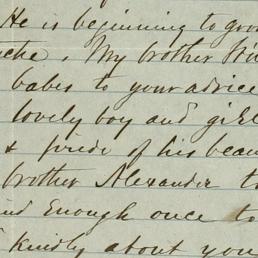 He is beginning to grow
. My brother
babes to your advice
lovely boy and girl
& pride of his beau
brother Alexander to
enough once to
kindly about you